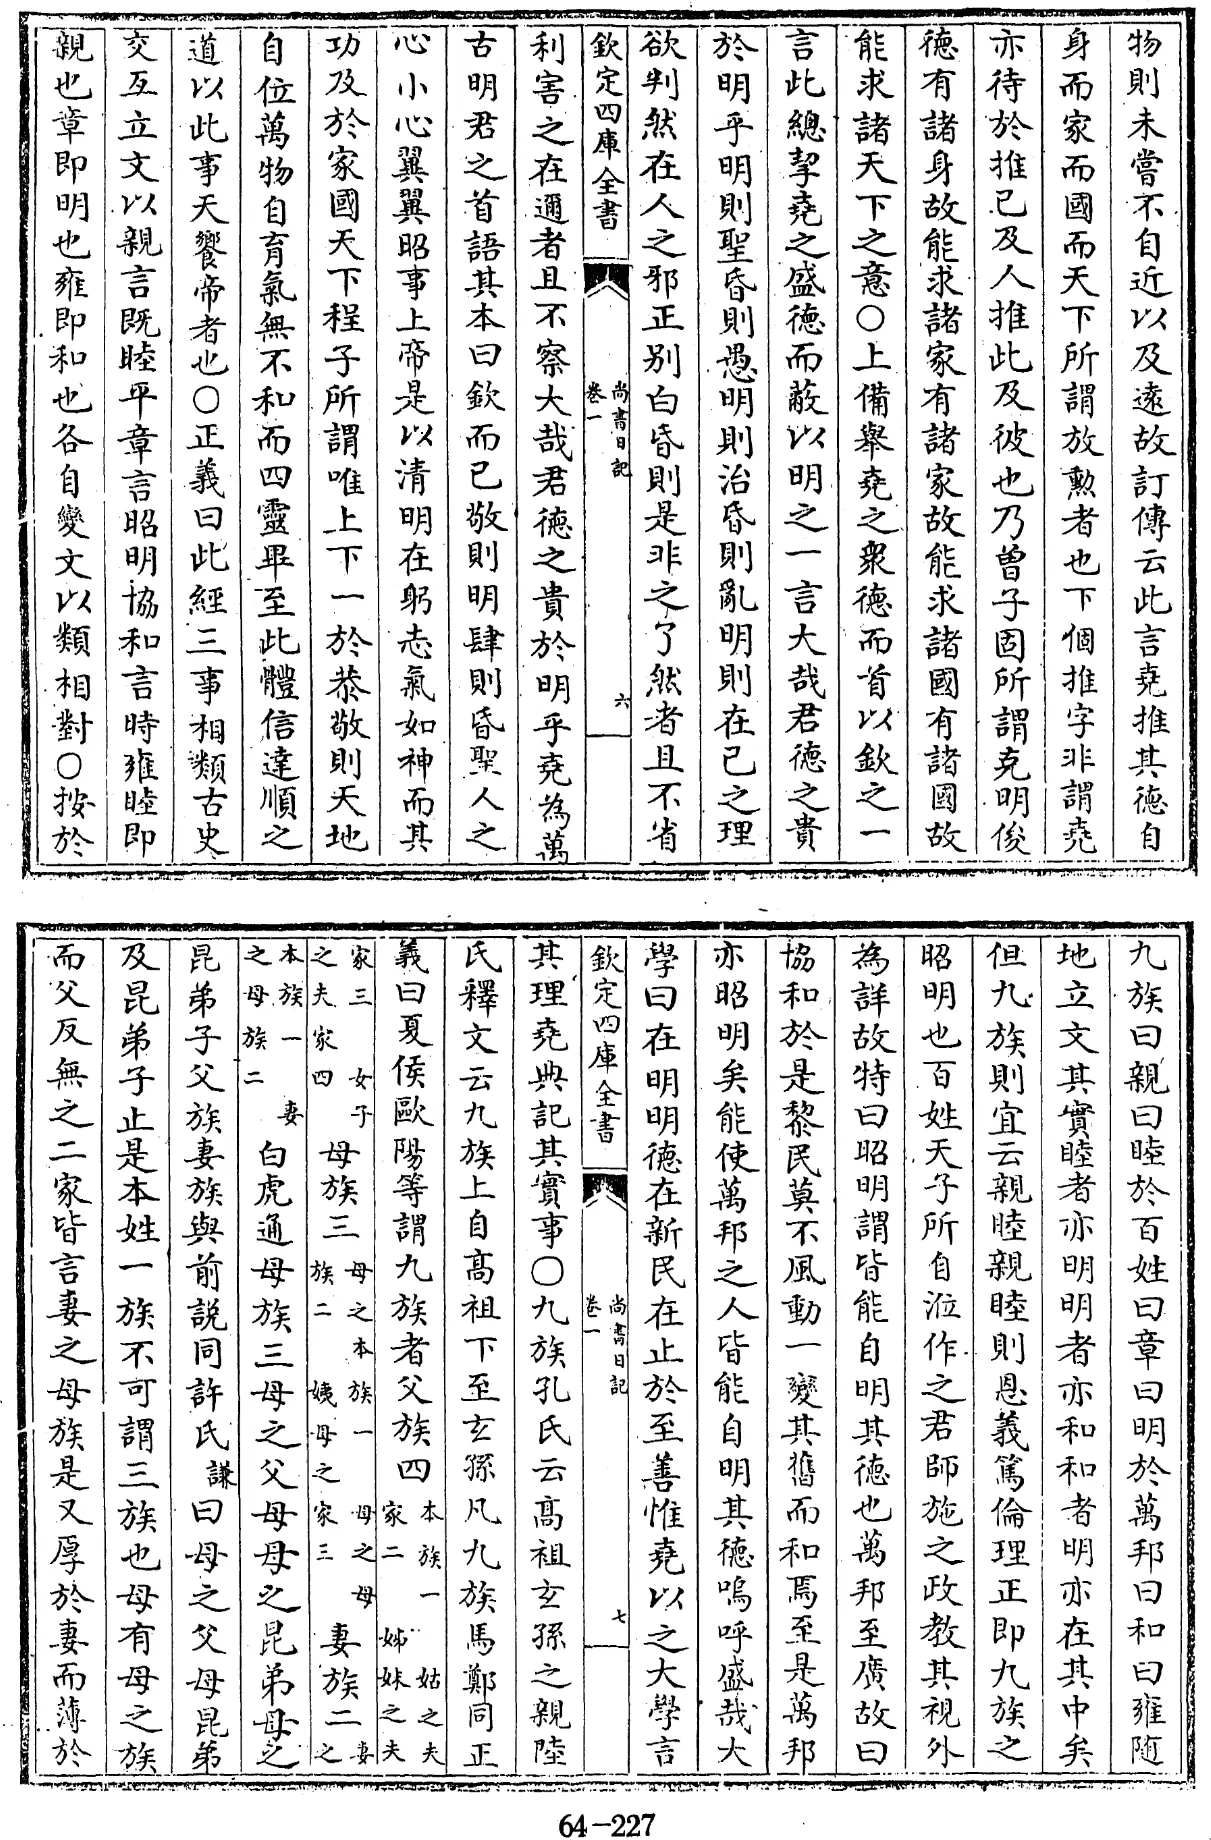 物則未嘗不自近以及遠故訂傳云此言堯推其德自
身而家而國而天下所謂放勲者也下個推字非謂堯
亦待於推已及人推此及彼也乃曾子固所謂克明俊
德有諸身故能求諸家有諸家故能求諸國有諸國故
能求諸天下之意〇上備舉堯之衆德而首以欽之一
言此總挈堯之盛德而蔽以明之一言大哉君德之貴
於明乎明則聖昏則愚明則治昏則亂明則在已之理
欲判然在人之邪正别白昏則是非之了然者且不省
欽定四庫全書
尚書日記
卷一
六
利害之在邇者且不察大哉君德之貴於明乎堯為萬
古明君之首語其本曰欽而已敬則明肆則昏聖人之
心小心翼翼昭事上帝是以清明在躬志氣如神而其
功及於家國天下程子所謂唯上下一於恭敬則天地
自位萬物自育氣無不和而四靈畢至此體信達順之
道以此事天饗帝者也〇正義曰此經三事相類古史
交互立文以親言既睦平章言昭明協和言時雍睦即
親也章即明也雍即和也各自變文以類相對〇按於
九族曰親曰睦於百姓曰章曰明於萬邦曰和曰雍随
地立文其實睦者亦明明者亦和和者明亦在其中矣
但九族則宜云親睦親睦則恩義篤倫理正即九族之
昭明也百姓天子所自涖作之君師施之政教其視外
為詳故特曰昭明謂皆能自明其德也萬邦至廣故曰
協和於是黎民莫不風動一變其舊而和焉至是萬邦
亦昭明矣能使萬邦之人皆能自明其德嗚呼盛哉大
學曰在明明德在新民在止於至善惟堯以之大學言
欽定四庫全書
尚書日記
卷一
七
其理堯典記其實事〇九族孔氏云高祖玄孫之親陸
氏釋文云九族上自高祖下至玄孫凡九族馬鄭同正
義曰夏侯歐陽等謂九族者父族四本族一姑之夫家二姊妹之夫
家三女子之夫家四母族三母之本族一母之母族二姨母之家三妻族二妻之
本族一妻之母族二白虎通母族三母之父母母之昆弟母之
昆弟子父族妻族與前説同許氏謙曰母之父母昆弟
及昆弟子止是本姓一族不可謂三族也母有母之族
而父反無之二家皆言妻之母族是又厚於妻而薄於
64-227